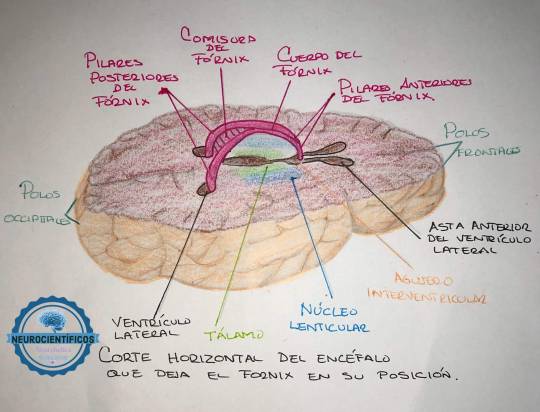 COMISURA
DEL
FÓRNIX
PILARES
POSTERIORES
DEL
FÓRNIX
CUERPO DEL
FÓRNIX
PILARES ANTERIORES
DEL FÓRNIX.
POLOS
FRONTALES
POLOS
OCCIPITALES
ASTA ANTERIOR
DEL VENTRÍCULO
LATERAL
AGUJERO
INTERVENTRICULAR
NÚCLEO
LENTICULAR
TÁLAMO
VENTRÍCULO
LATERAL
NEUROCIENTÍFICOS
CORTE HORIZONTAL DEL ENCÉFALO
QUE DEJA EL FORNIX EN SU POSICIÓN.